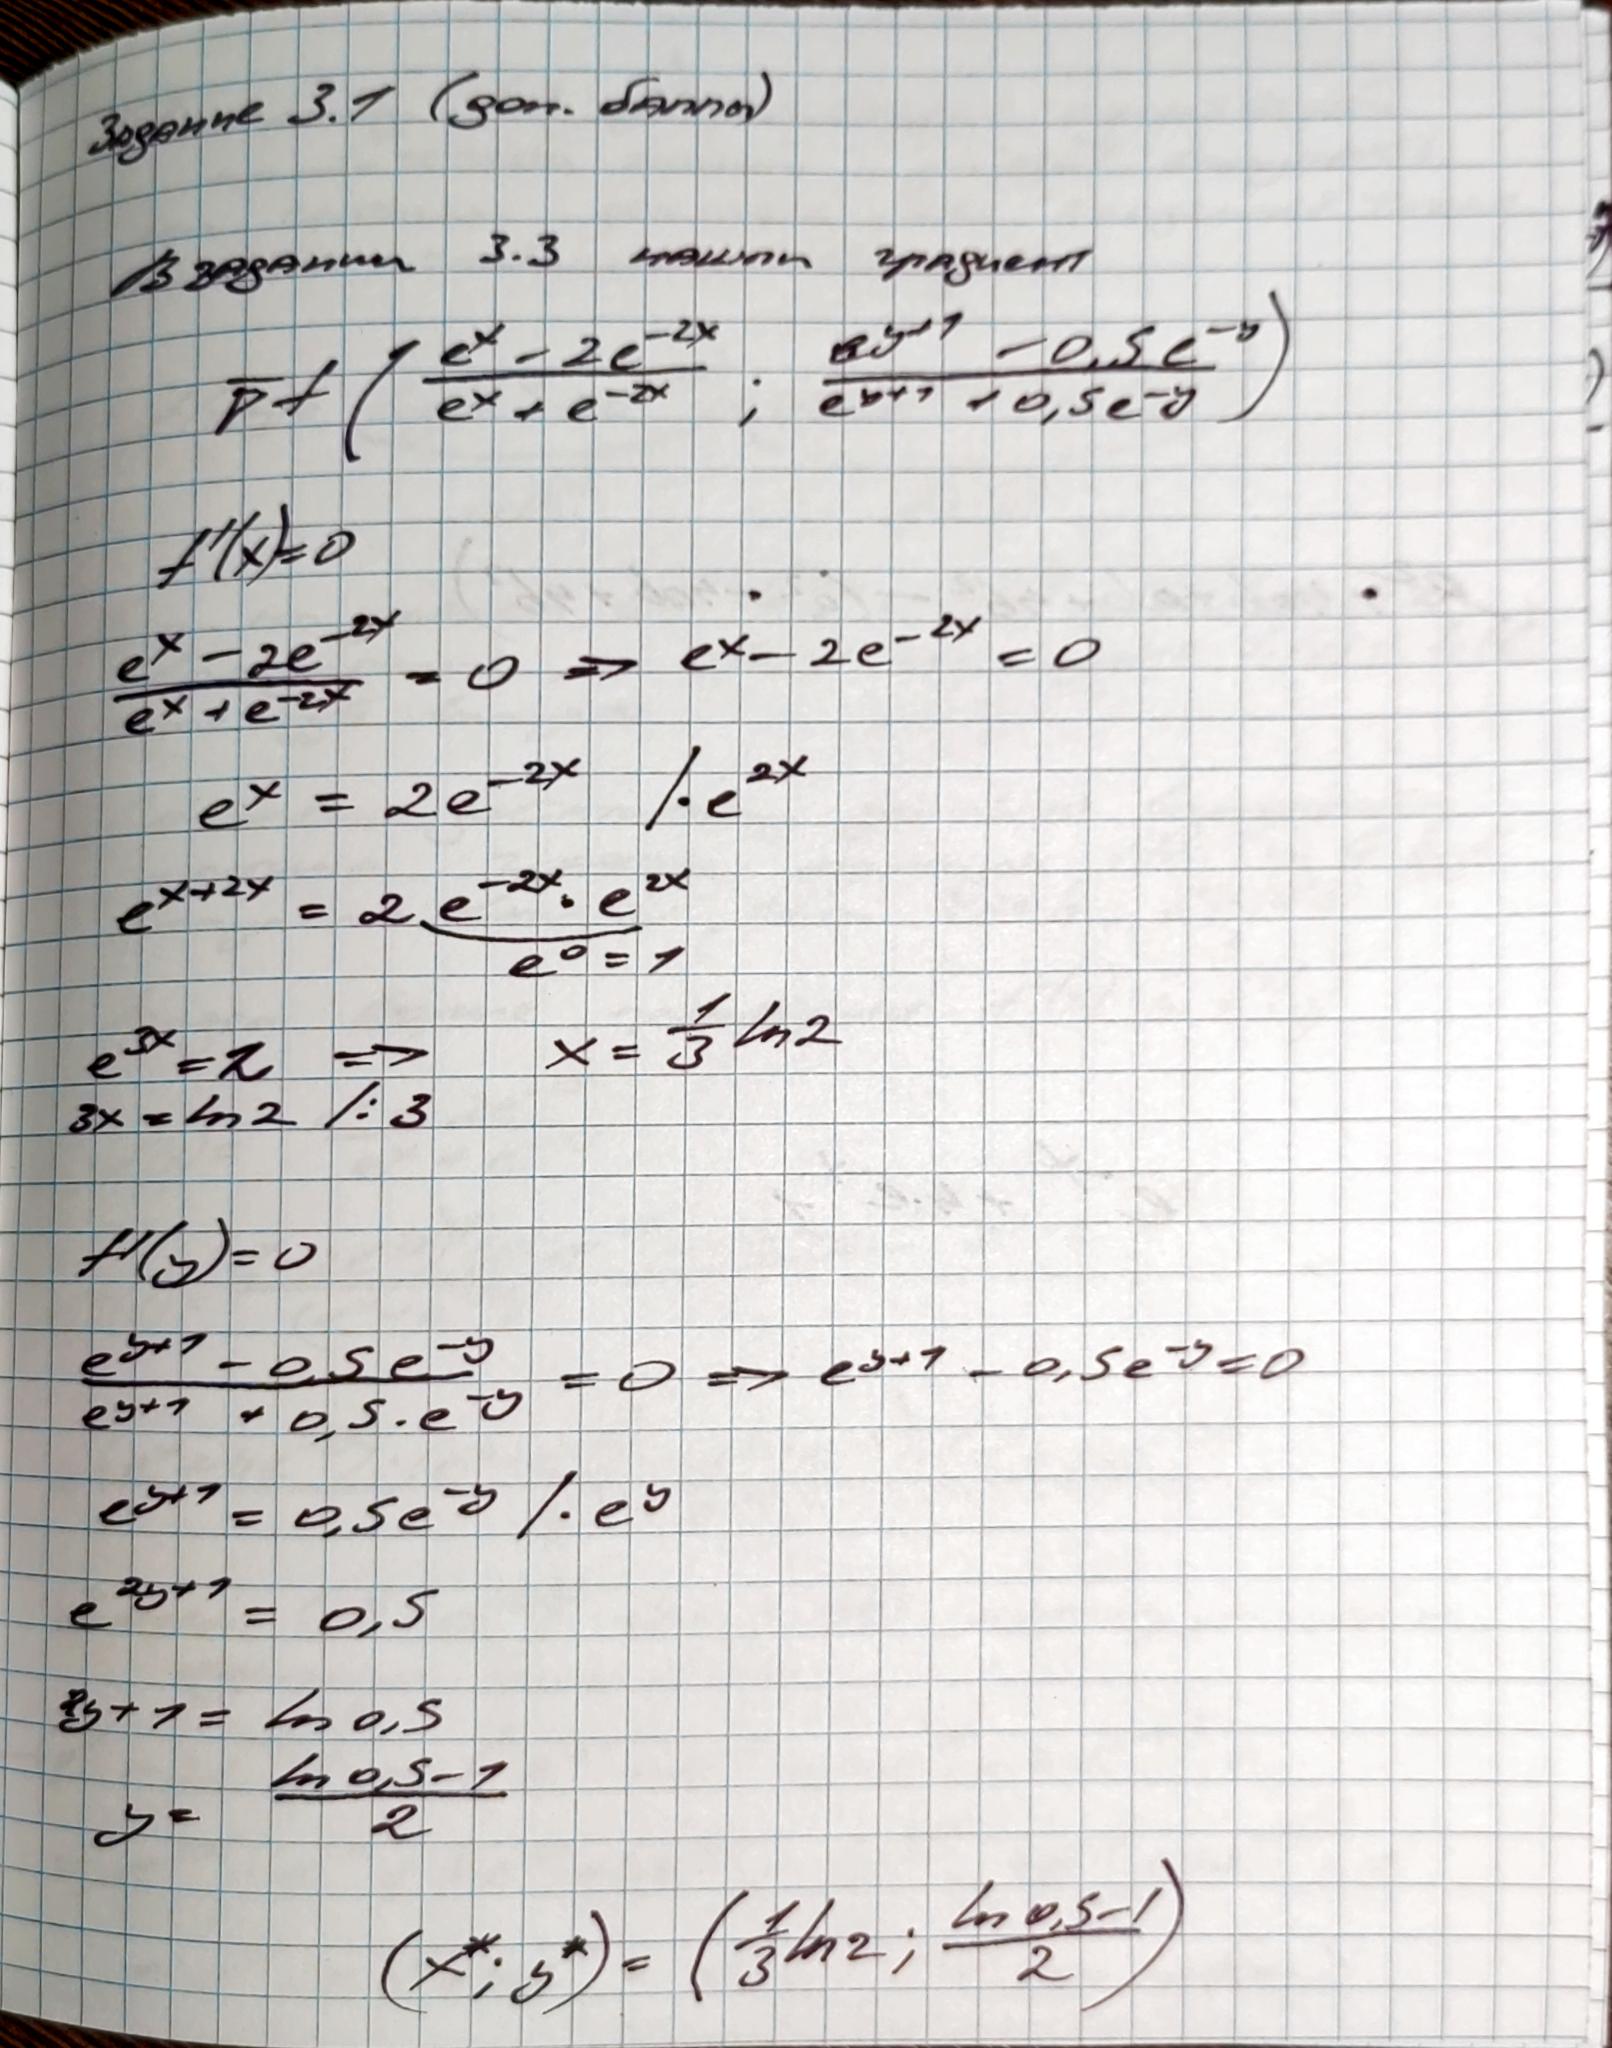 Задание 3.1 (доп. баллы)
В задании 3.3 нашли градиент
∇f ( (e^x − 2e^{−2x})/(e^x + e^{−2x}) ; (e^{y+1} − 0,5e^{−y})/(e^{y+1} + 0,5e^{−y}) )
f'(x)=0
(e^x − 2e^{−2x})/(e^x + e^{−2x}) = 0 => e^x − 2e^{−2x} = 0
e^x = 2e^{−2x} /·e^{2x}
e^{x+2x} = 2 e^{−2x} · e^{2x}
e^0 = 1
e^{3x} = 2 => x = 1/3 ln2
3x = ln2 /:3
f'(y)=0
(e^{y+1} − 0,5e^{−y})/(e^{y+1} + 0,5·e^{−y}) = 0 => e^{y+1} − 0,5e^{−y} = 0
e^{y+1} = 0,5e^{−y} /·e^y
e^{2y+1} = 0,5
2y+1 = ln0,5
y = (ln0,5−1)/2
(x*; y*) = (1/3 ln2; (ln0,5−1)/2)